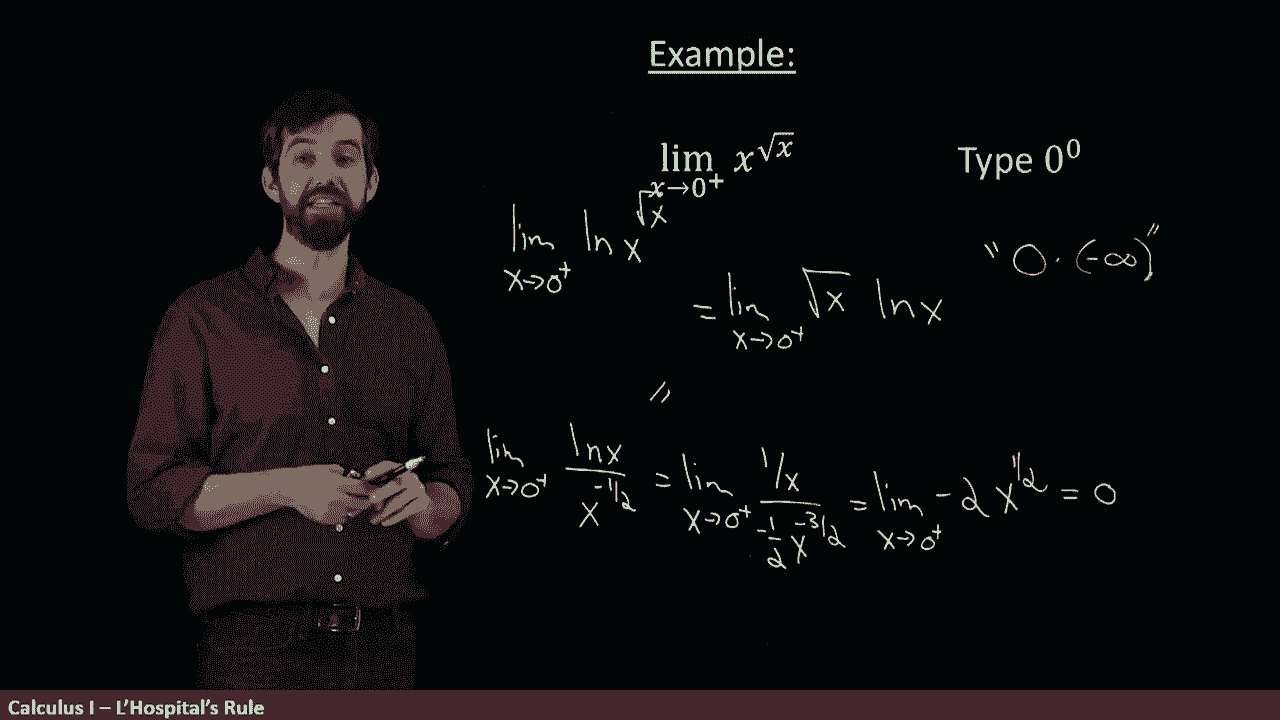 Example:
lim x→0⁺ x^√x
Type 0⁰
lim x→0⁺ ln x^√x
"0·(-∞)"
= lim x→0⁺ √x ln x
=
lim x→0⁺ ln x / x^(-1/2) = lim x→0⁺ (1/x) / (-1/2 x^(-3/2)) = lim x→0⁺ -2x^(1/2) = 0
Calculus I – L'Hospital's Rule